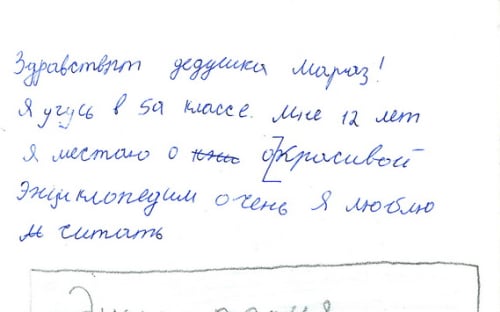 Здравствит дедушка мараз!
Я учусь в 5а классе. Мне 12 лет
Я местаю о о красивой
Энциклопедим очень Я люблю
читать